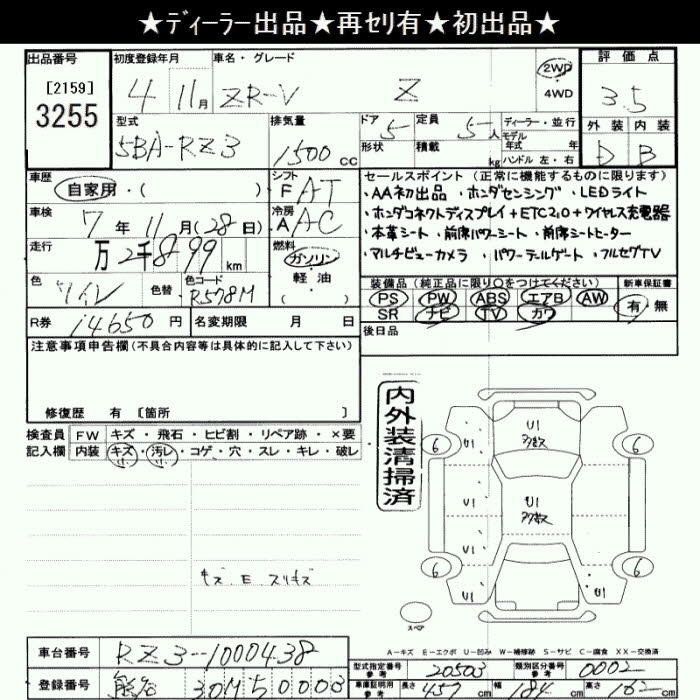 ★ディーラー出品★再セリ有★初出品★
出品番号 初度登録年月 車名・グレード 2WD 4WD 評価点
[2159]
3255
4 11月 ZR-V Z 3.5
型式 排気量 ドア 定員 ディーラー・並行 外装 内装
5BA-RZ3 1500cc 5 5人 モデル年式 年式 D B
形状 積載 kg ハンドル 左・右
車歴 シフト セールスポイント(正常に機能するものに限ります)
自家用・( ) FAT ・AA初出品 ・ホンダセンシング ・LEDライト
車検 冷房 ・ホンダコネクトディスプレイ+ETC2.0+ワイヤレス充電器
7年11月(28日) AAC ・本革シート・前席パワーシート・前席シートヒーター
走行 燃料 ・マルチビューカメラ ・パワーテールゲート・フルセグTV
万2千899km ガソリン
色 色替 色コード 軽・油 装備品(純正品に限り○をつけてください) 新車保証書
ワイン R578M ( ) PS PW ABS エアB AW 有・無
R券 14650円 名変期限 月 日 SR ナビ TV カワ
注意事項申告欄(不具合内容等は具体的に記入して下さい) 後日品
修復歴 有 [箇所 ]
内外装清掃済
検査員 FW キズ・飛石・ヒビ割・リペア跡・×要
記入欄 内装 キズ・汚レ・コゲ・穴・スレ・キレ・破レ
キズ.E.スリキズ
U1
6 6
U1 U1
U1
6 6
U1
スペア
A-キズ E-エクボ U-凹み W-補修跡 S-サビ C-腐食 XX-交換済
車台番号 RZ3-1000438
型式指定番号 参考 20503 類別区分番号 参考 0002
登録番号 熊谷 30
車庫証明用 参考 長さ 457cm 幅 184cm 高さ 162cm